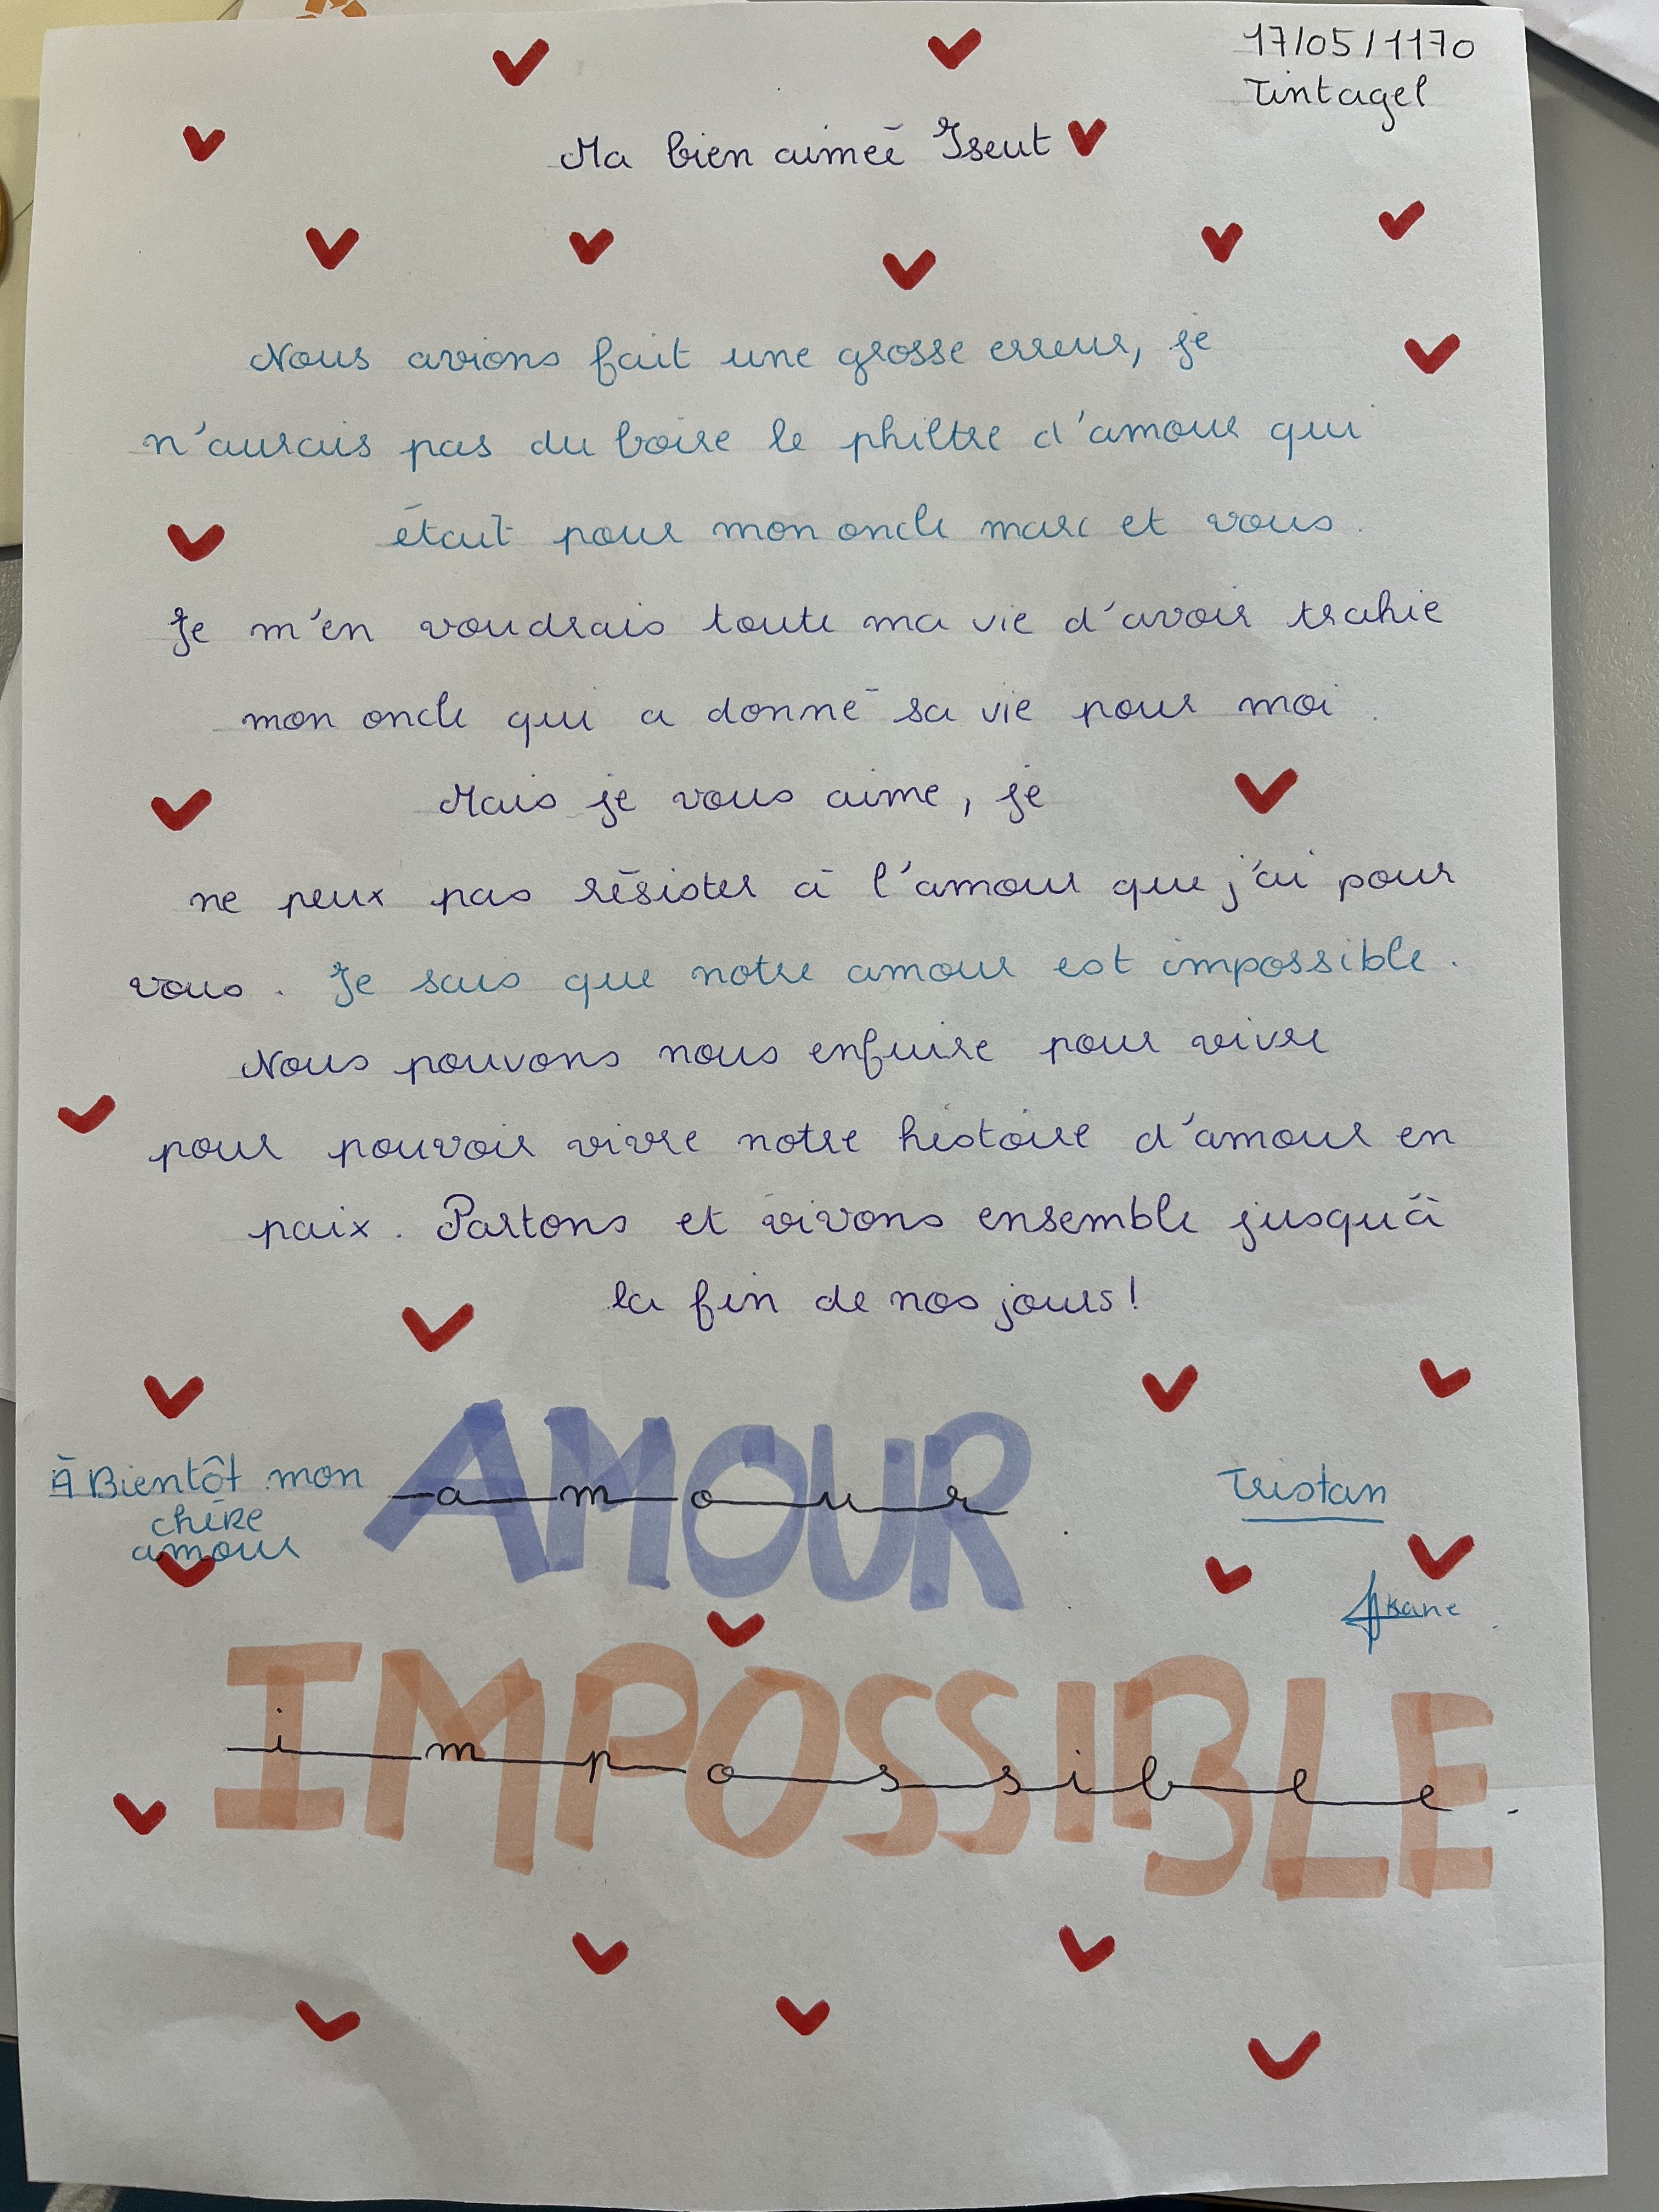 17/05/1170
Tintagel
Ma bien aimée Iseut
Nous avions fait une grosse erreur, je
n'aurais pas du boire le philtre d'amour qui
était pour mon oncle marc et vous.
Je m'en voudrais toute ma vie d'avoir trahie
mon oncle qui a donné sa vie pour moi.
Mais je vous aime, je
ne peux pas résister à l'amour que j'ai pour
vous. Je sais que notre amour est impossible.
Nous pouvons nous enfuire pour vivre
pour pouvoir vivre notre histoire d'amour en
paix. Partons et vivons ensemble jusqu'à
la fin de nos jours!
À Bientôt mon
chère
amour
AMOUR
amour
Tristan
Akane
IMPOSSIBLE
impossible.